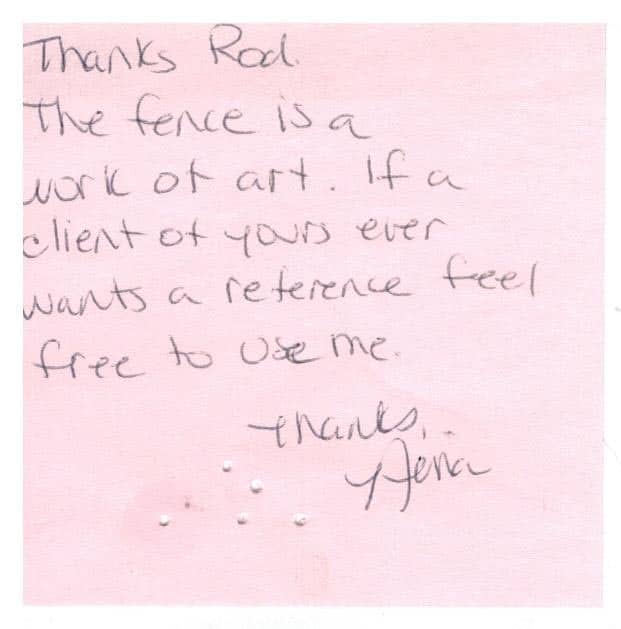 Thanks Rod.
The fence is a
work of art. If a
client of yours ever
wants a reference feel
free to use me.
Thanks,